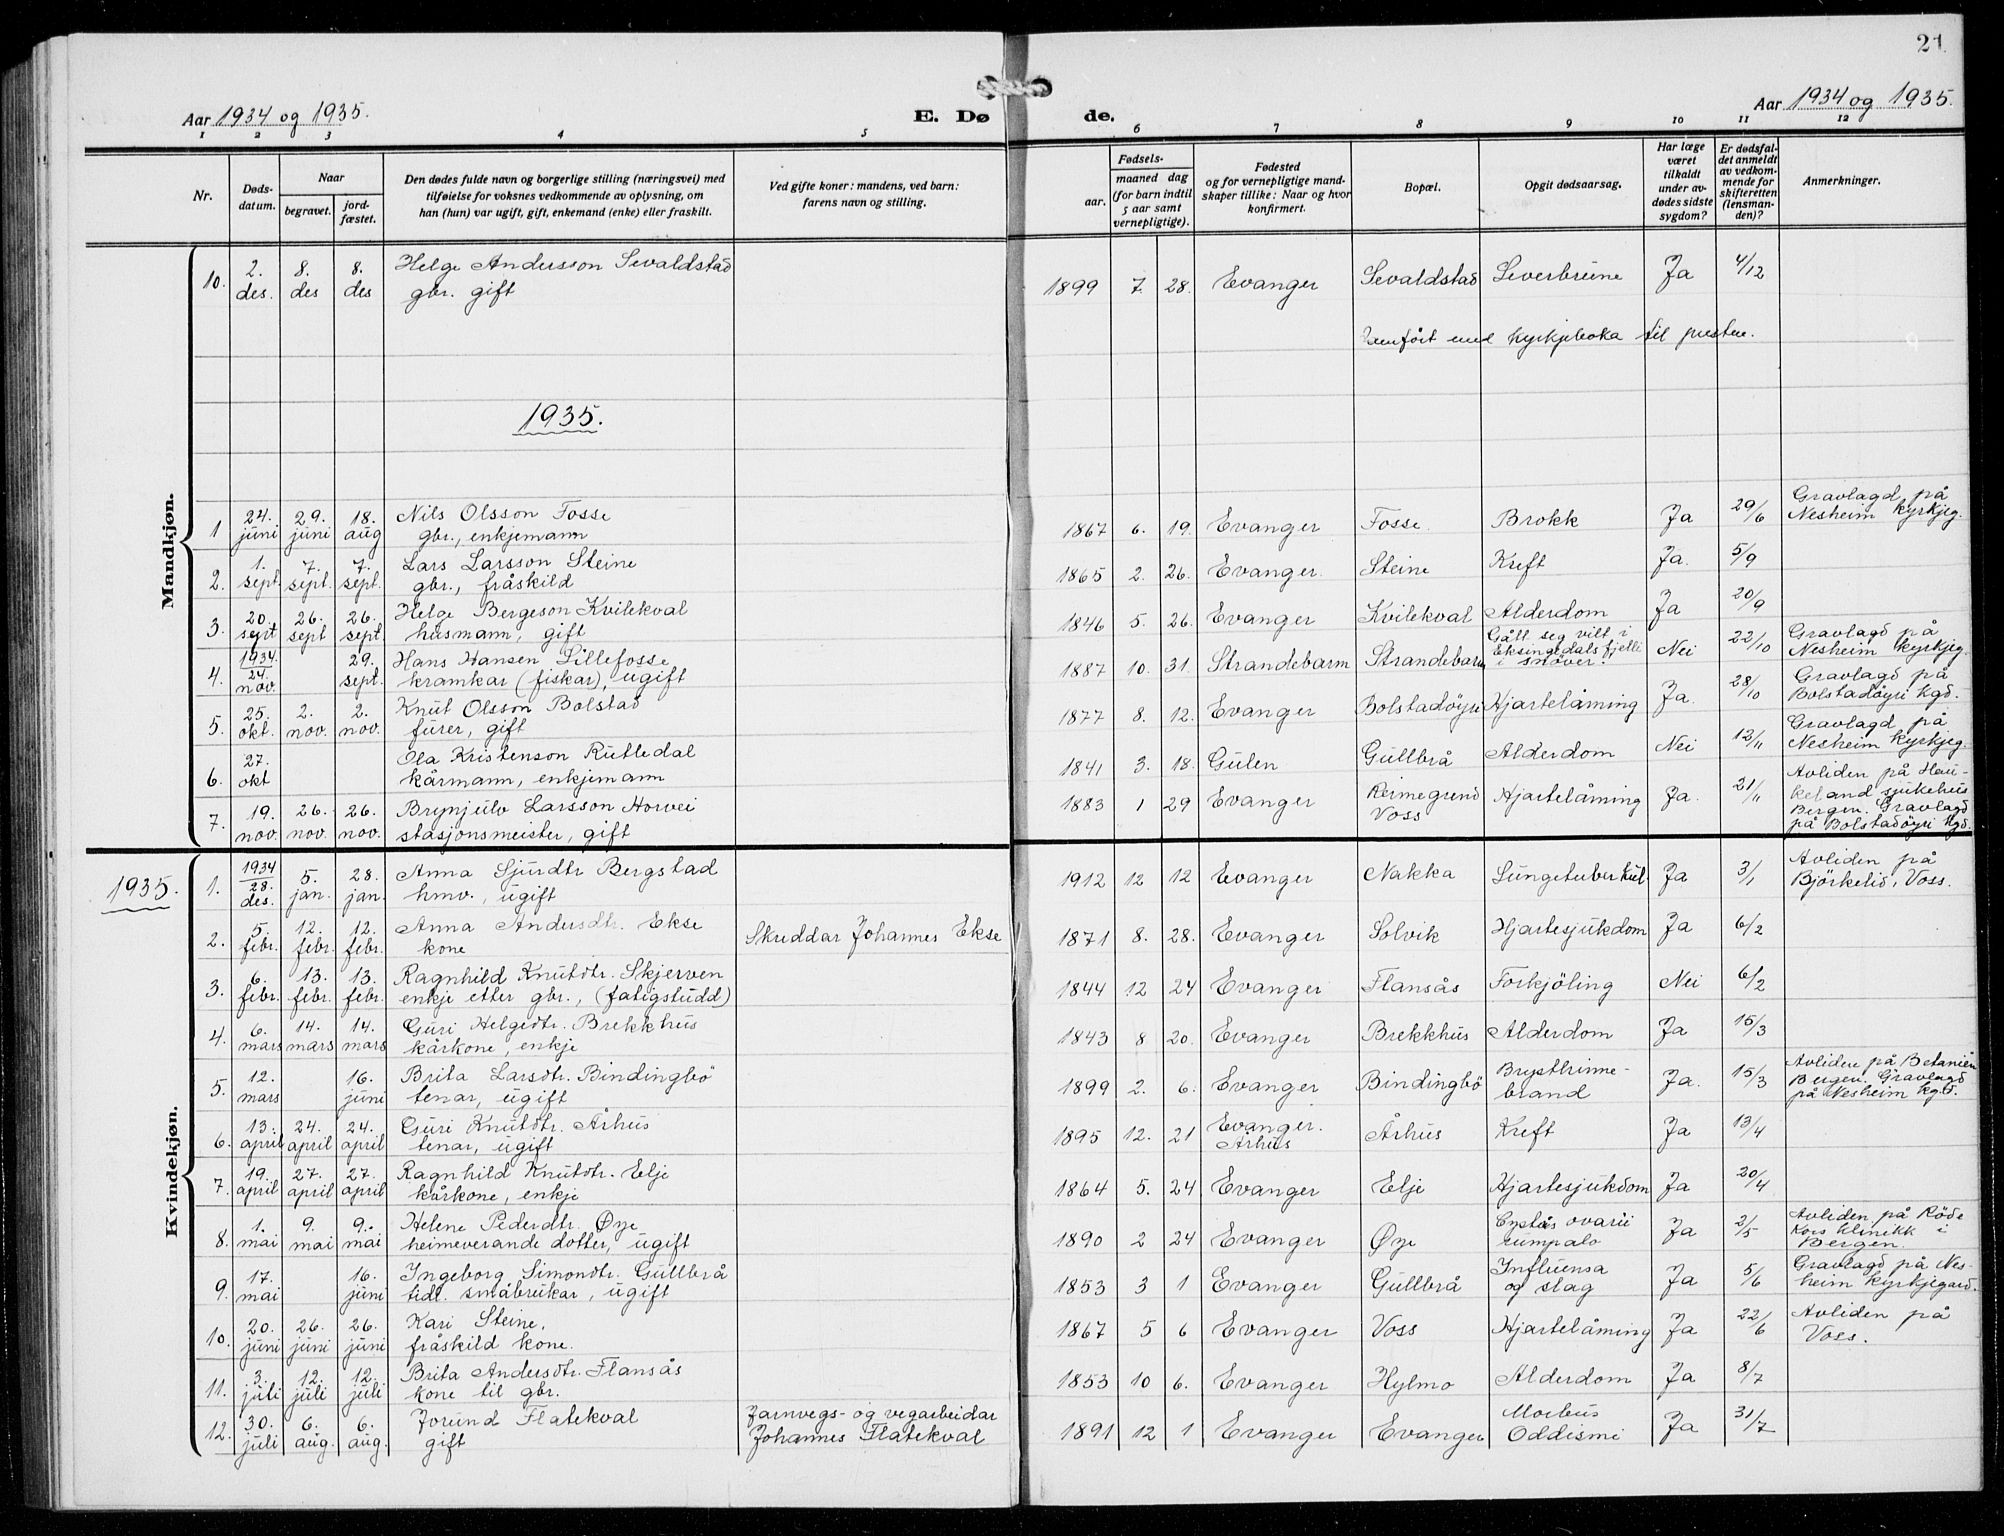 21
Aar 1934 og 1935.
E. Dø
de.
Aar 1934 og 1935.
1 2 3 4 5 6 7 8 9 10 11 12
Nr.
Døds-
datum.
Naar
begravet.
jord-
fæstet.
Den dødes fulde navn og borgerlige stilling (næringsvei) med
tilføielse for voksnes vedkommende av oplysning, om
han (hun) var ugift, gift, enkemand (enke) eller fraskilt.
Ved gifte koner: mandens, ved barn:
farens navn og stilling.
Fødsels-
aar.
maaned dag
(for barn indtil
5 aar samt
vernepligtige).
Fødested
og for vernepligtige mand-
skaper tillike: Naar og hvor
konfirmert.
Bopæl.
Opgit dødsaarsag.
Har læge
været
tilkaldt
under av-
dødes sidste
sygdom?
Er dødsfal-
det anmeldt
av vedkom-
mende for
skifteretten
(lensman-
den)?
Anmerkninger.
Mandkjøn.
10. 2. des. 8. des 8. des Helge Andersson Sevaldstad
gbr. gift
1899 7. 28. Evanger Sevaldstad Leverbreine Ja 4/12
Jemfört med kyrkjeboka til presten.
1935.
1 24. juni 29. juni 18. aug Nils Olsson Fosse
gbr., enkjemann
1867 6. 19. Evanger Fosse. Brokk Ja 29/6 Gravlagd på
Nesheim kyrkjeg.
2. 1. sept. 7. sept. 7. sept. Lars Larsson Steine
gbr., fråskild
1865 2. 26. Evanger. Steine Kreft Ja. 5/9
3. 20. sept 26. sept 26. sept. Helge Bergeson Kvilekval
husmann, gift
1846 5. 26. Evanger Kvilekval Alderdom Ja 20/9
4. 1934 24. nov. 29. sept. Hans Hansen Lillefosse
kramkar (fiskar), ugift
1887 10. 31. Strandebarm Strandebarm Gått seg vilt i
Eksingedalsfjelli
i snöver. Nei 22/10 Gravlagd på
Nesheim kyrkjeg.
5. 25. okt. 2. nov. 2. nov. Knut Olsson Bolstad
furer, gift
1877 8. 12. Evanger Bolstadöyri Hjartelåming Ja. 28/10 Gravlagd på
Bolstadöyri kgd.
6. 27. okt Ola Kristenson Rutledal
kårmann, enkjemann
1841 3. 18. Gulen Gullbrå Alderdom Nei 12/11 Gravlagd på
Nesheim kyrkjeg.
7. 19. nov. 26. nov. 26. nov. Brynjulv Larsson Horvei
stasjonsmeister, gift
1883 1 29 Evanger Reimegrend
Voss Hjartelåming Ja. 21/11 Avliden på Hau-
keland sjukehus
Bergen. Gravlagd
på Bolstadöyri kgd.
1935.
Kvindekjøn.
1. 1934 28. des. 5. jan. 28. jan. Anna Sjurdtr Bergstad
hmv., ugift
1912 12 12 Evanger Nakka Lungetuberkul Ja 3/1 Avliden på
Björkelid, Voss.
2. 5. febr. 12. febr. 12. febr. Anna Andersdtr. Ekse
kone
Skreddar Johannes Ekse
1871 8. 28. Evanger Solvik Hjartesjukdom Ja 6/2
3. 6. febr. 13. febr. 13. febr. Ragnhild Knutdtr. Skjerven
enkje etter gbr., (fatigstudd)
1844 12 24 Evanger Flansås Forkjöling Nei 6/2
4. 6. mars 14. mars 14. mars Guri Helgedtr. Brekkhus
kårkone, enkje
1843 8 20. Evanger Brekkhus Alderdom Ja 15/3
5. 12. mars 16. juni Brita Larsdtr. Bindingbö
tenar, ugift
1899 2. 6. Evanger Bindingbö Brysthinne-
brand Ja. 15/3 Avliden på Betanien
Bergen. Gravlagd
på Nesheim kgd.
6. 13. april 24. april 24. april Guri Knutdtr. Århus
tenar, ugift
1895 12. 21 Evanger.
Århus Århus Kreft Ja 13/4
7. 19. april 27. april 27. april Ragnhild Knutdtr. Elje
kårkone, enkje
1864 5. 24 Evanger Elje Hjartesjukdom Ja 20/4
8. 1. mai 9. mai 9. mai Helene Pederdtr. Øye
heimeverande dotter, ugift
1890 2 24 Evanger Øye ovarii
Ja 2/5 Avliden på Röde
Kors klinikk i
Bergen.
9. 17. mai 16. juni Ingeborg Simondtr. Gullbrå
tidl. småbrukar, ugift
1853 3 1 Evanger Gullbrå Influensa
og slag Ja 5/6 Gravlagd på Nes-
heim kyrkjegard.
10. 20. juni 26. juni 26. juni Kari Steine,
fråskild kone.
1867 5 6 Evanger Voss Hjartelåming Ja 22/6 Avliden på
Voss.
11. 3. juli 12. juli 12. juli Brita Andersdtr. Flansås
kone til gbr.
1853 10 6. Evanger Hylmo Alderdom Ja 8/7
12. 30. juli 6. aug. 6. aug. Jorund Flatekval
gift
Jarnvegs- og vegarbeidar
Johannes Flatekval
1891 12 1 Evanger Evanger Morbus
Oddismi Ja 31/7